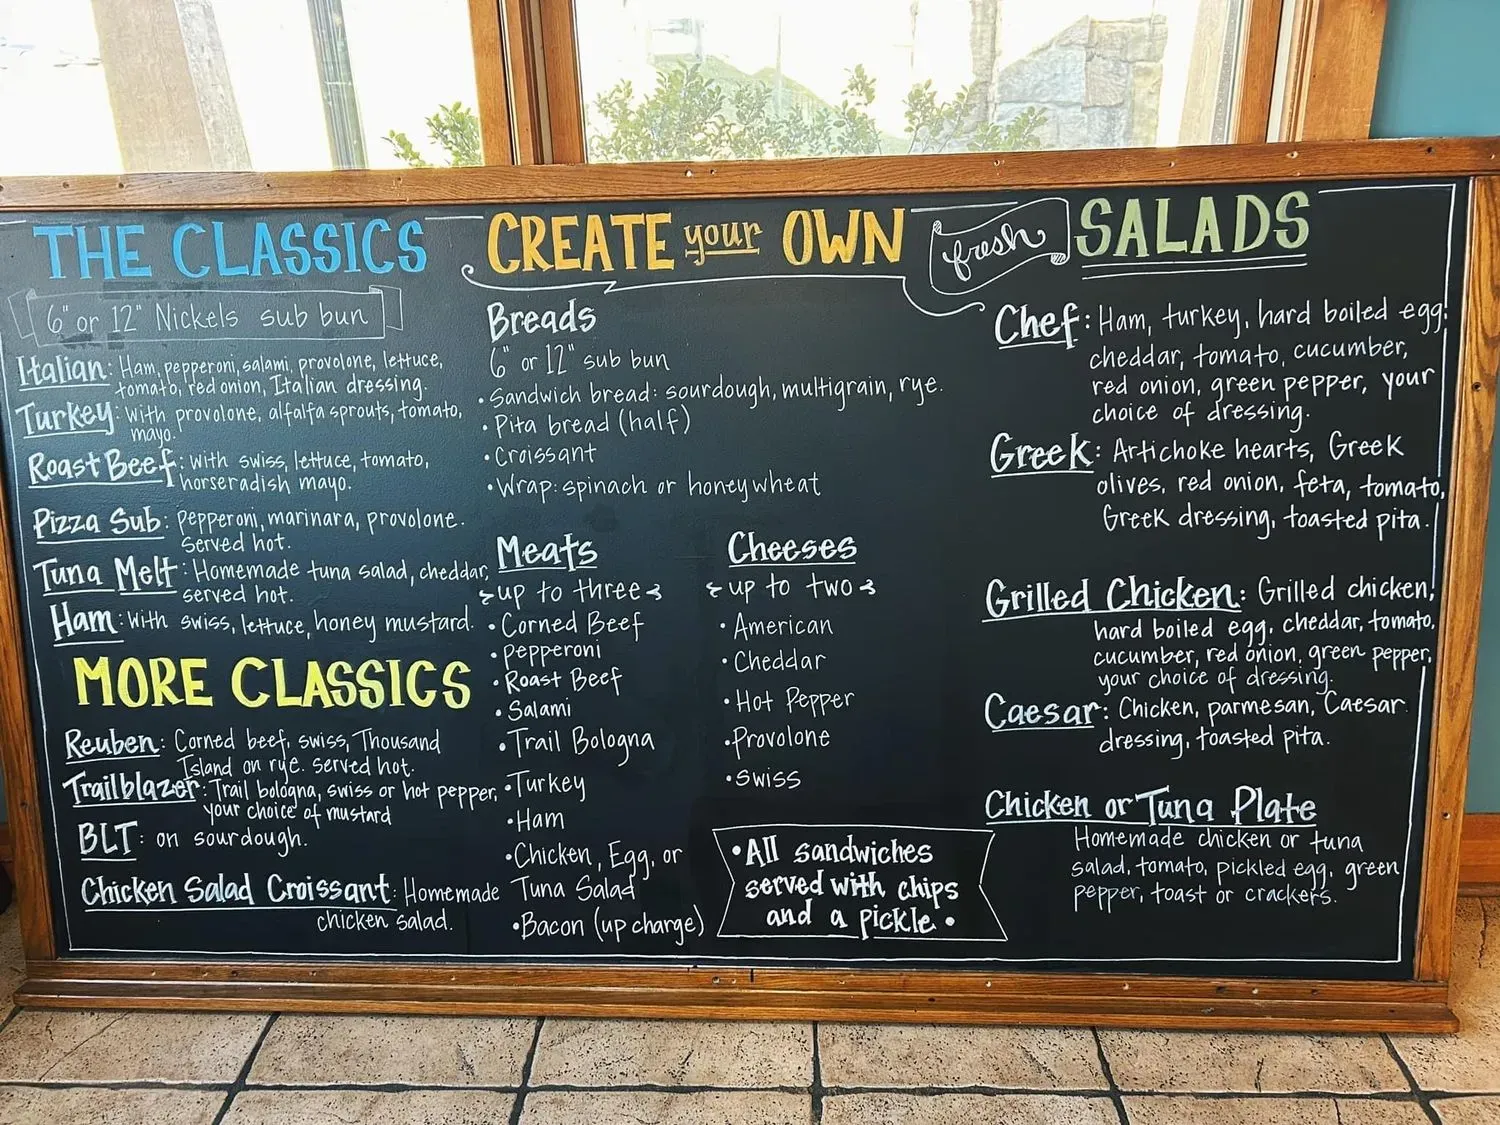 THE CLASSICS
6" or 12" Nickels sub bun
Italian: Ham, pepperoni, salami, provolone, lettuce,
tomato, red onion, Italian dressing.
Turkey: with provolone, alfalfa sprouts, tomato,
mayo.
Roast Beef: with swiss, lettuce, tomato,
horseradish mayo.
Pizza Sub: pepperoni, marinara, provolone.
served hot.
Tuna Melt: Homemade tuna salad, cheddar,
served hot.
Ham: with swiss, lettuce, honey mustard.
MORE CLASSICS
Reuben: Corned beef, swiss, Thousand
Island on rye. served hot.
Trailblazer: Trail bologna, swiss or hot pepper,
your choice of mustard
BLT: on sourdough.
Chicken Salad Croissant: Homemade
chicken salad.
CREATE your OWN
Breads
6" or 12" sub bun
• Sandwich bread: sourdough, multigrain, rye.
• Pita bread (half)
• Croissant
• Wrap: spinach or honeywheat
Meats
up to three
• Corned Beef
• pepperoni
• Roast Beef
• Salami
• Trail Bologna
• Turkey
• Ham
• Chicken, Egg, or
Tuna Salad
• Bacon (up charge)
Cheeses
up to two
• American
• Cheddar
• Hot Pepper
• Provolone
• Swiss
• All sandwiches
served with chips
and a pickle •
fresh SALADS
Chef: Ham, turkey, hard boiled egg,
cheddar, tomato, cucumber,
red onion, green pepper, your
choice of dressing.
Greek: Artichoke hearts, Greek
olives, red onion, feta, tomato,
Greek dressing, toasted pita.
Grilled Chicken: Grilled chicken,
hard boiled egg, cheddar, tomato,
cucumber, red onion, green pepper,
your choice of dressing.
Caesar: Chicken, parmesan, Caesar
dressing, toasted pita.
Chicken or Tuna Plate
Homemade chicken or tuna
salad, tomato, pickled egg, green
pepper, toast or crackers.